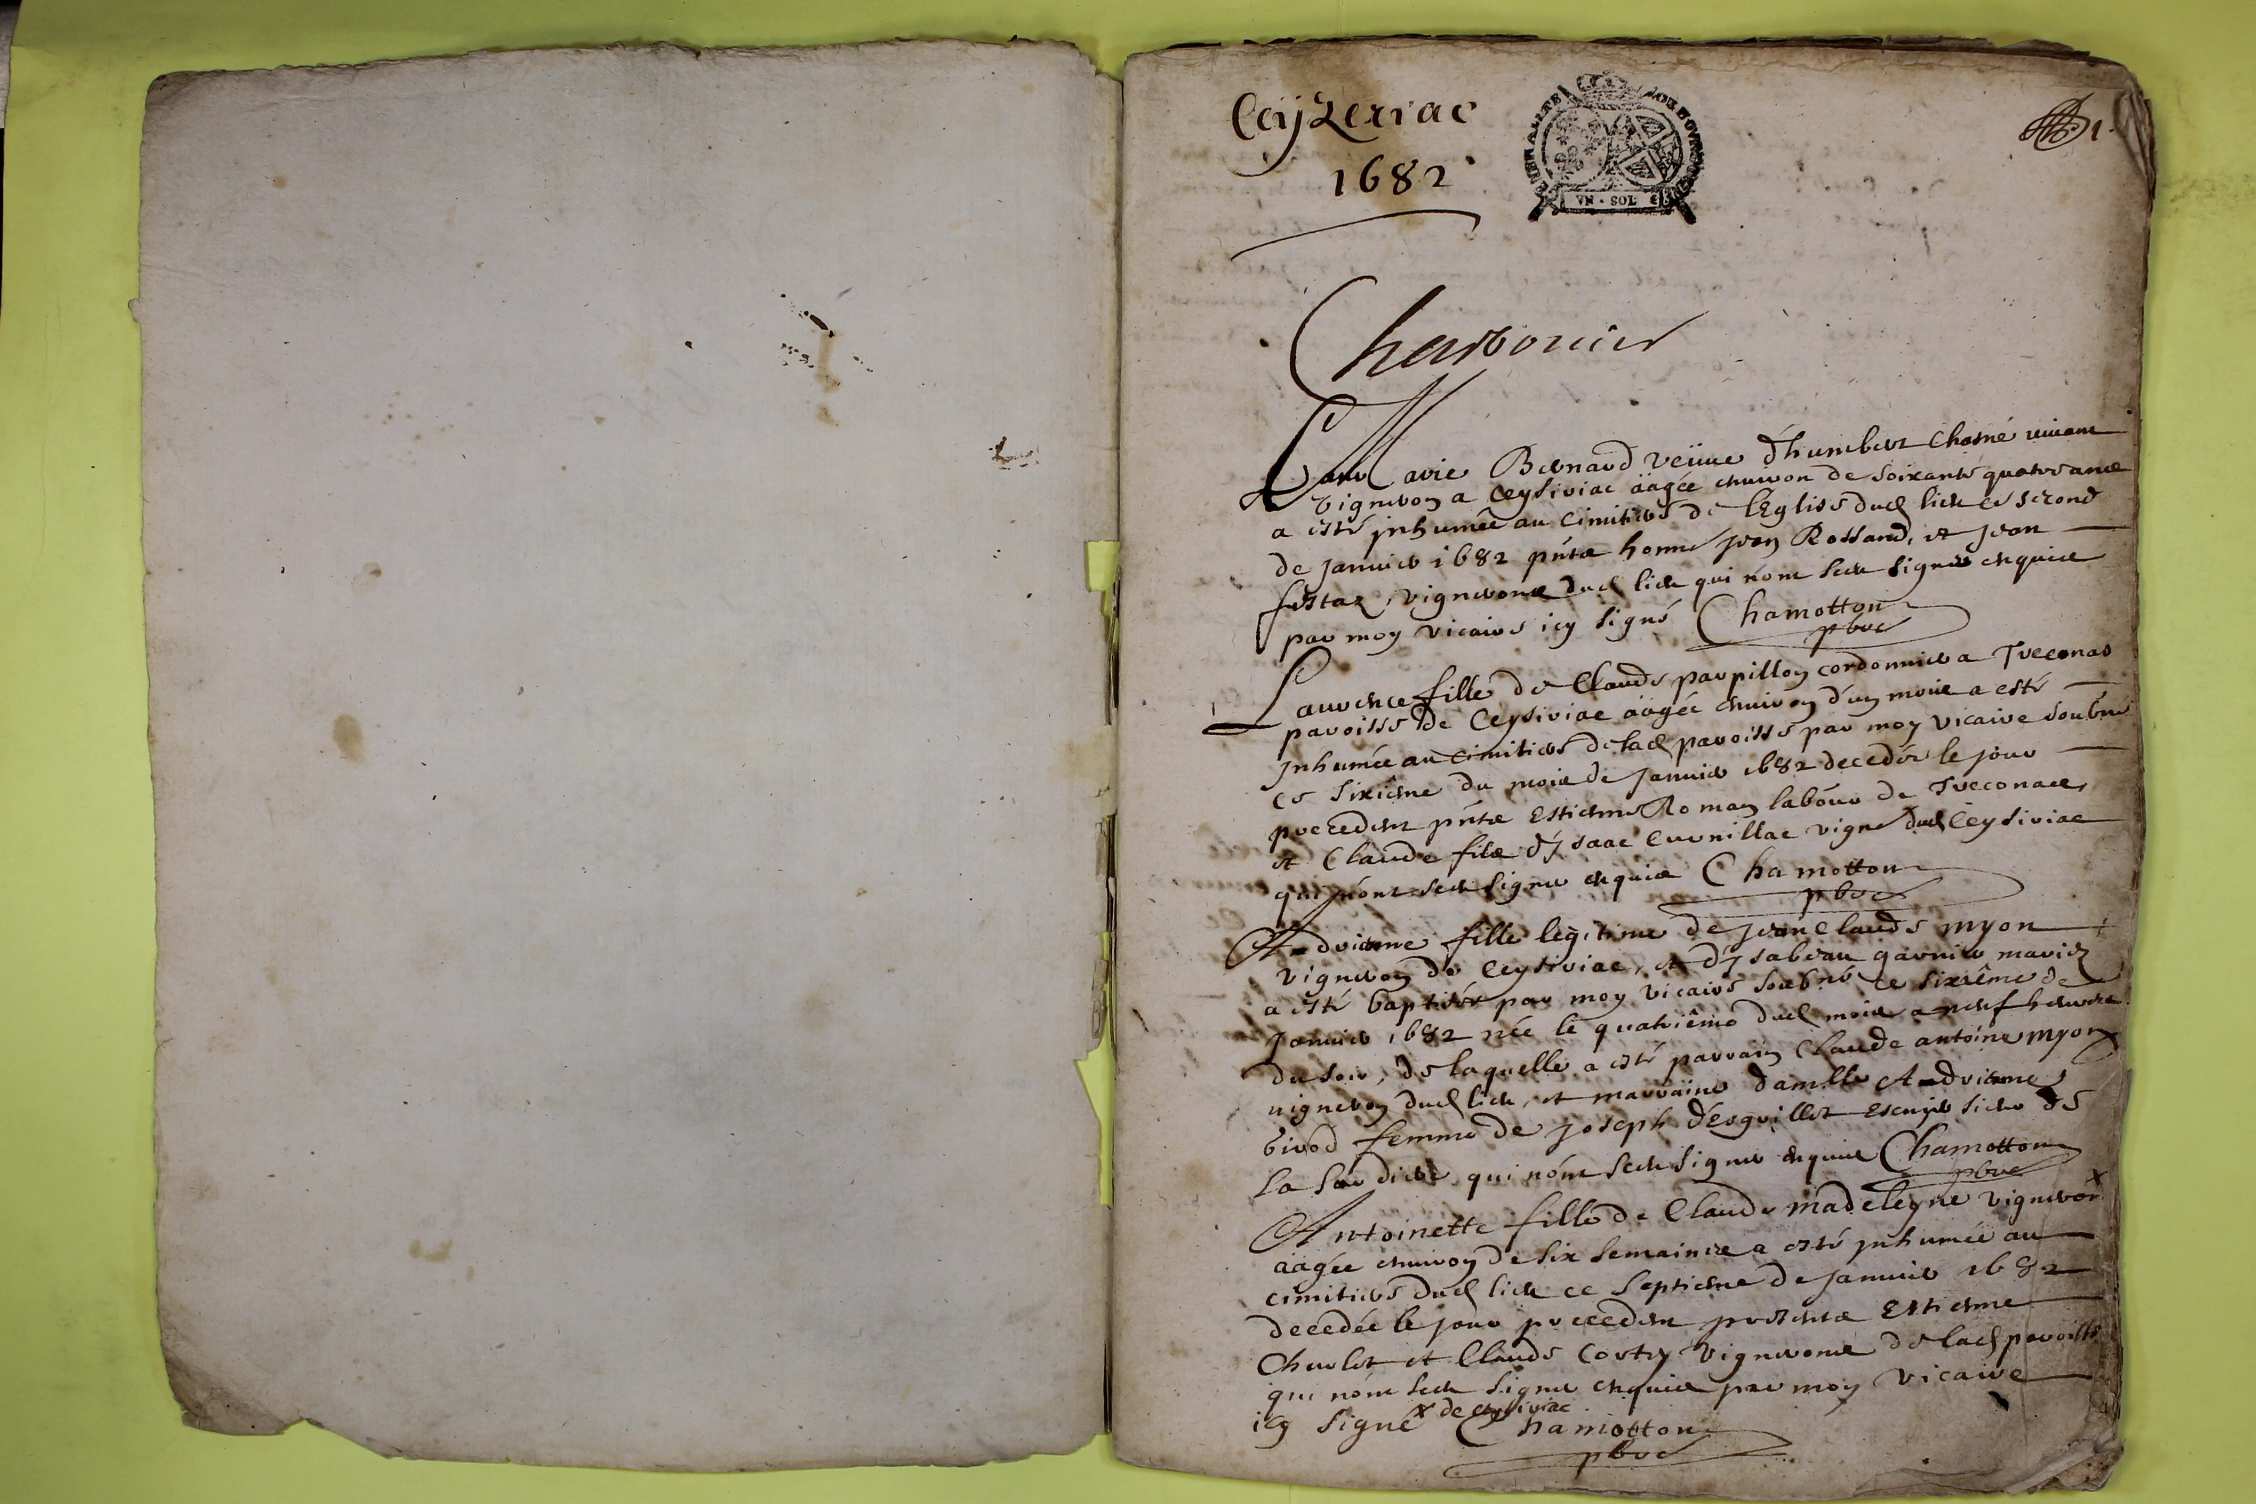 Ceijzeriac
1682
VN · SOL
1
Charbonier
Marie Bernard veüue d'humbert Chosné viuant
vigneron a Ceysiriac äagée enuiron de soixante quatre ans
a esté jnhumée au cimitiere de l'Eglise dud lieu ce second
de januier 1682 pnts honne jean Rossand, et jean
vignerons dud lieu qui n'ont sceu signer enquis
par moy vicaire icy signé Chamotton
pbre
Laurence fille de Claude parpillon cordonnier a Treconas
paroisse de Ceysiriac äagée enuiron d'un mois a esté
jnhumée au cimitiere de lad paroisse par moy vicaire soubné
ce sixiesme du mois de januier 1682 decedée le jour
precedent pnts Estienne Roman labour de Treconas,
et Claude fils d'jsaac Curnillac vigne dud Ceysiriac
qui n'ont sceu signer enquis Chamotton
pbre
Adrienne fille legitime de jean Claude myon
vigneron de Ceysiriac, et d'jsabeau garnier mariez
a esté baptisée par moy vicaire soubné ce sixième de
januier 1682 née le quatrième dud mois a neuf heures
du soir, de laquelle a esté parrain Claude antoine myon
vigneron dud lieu, et marraine damlle Adrienne
birod femme de joseph d'Esguillot Escuyer sieur de
la qui n'ont sceu signer enquis Chamotton
pbre
Antoinette fille de Claude madeleyne vigneron x
äagée enuiron de six semaines a esté jnhumée au
cimitiere dud lieu ce septiesme de januier 1682
decedée le jour precedent presents Estienne
Churlet et Claude Costy vignerons de lad paroisse
qui n'ont sceu signer enquis par moy vicaire
icy signé x de ceysiriac
Chamotton
pbre